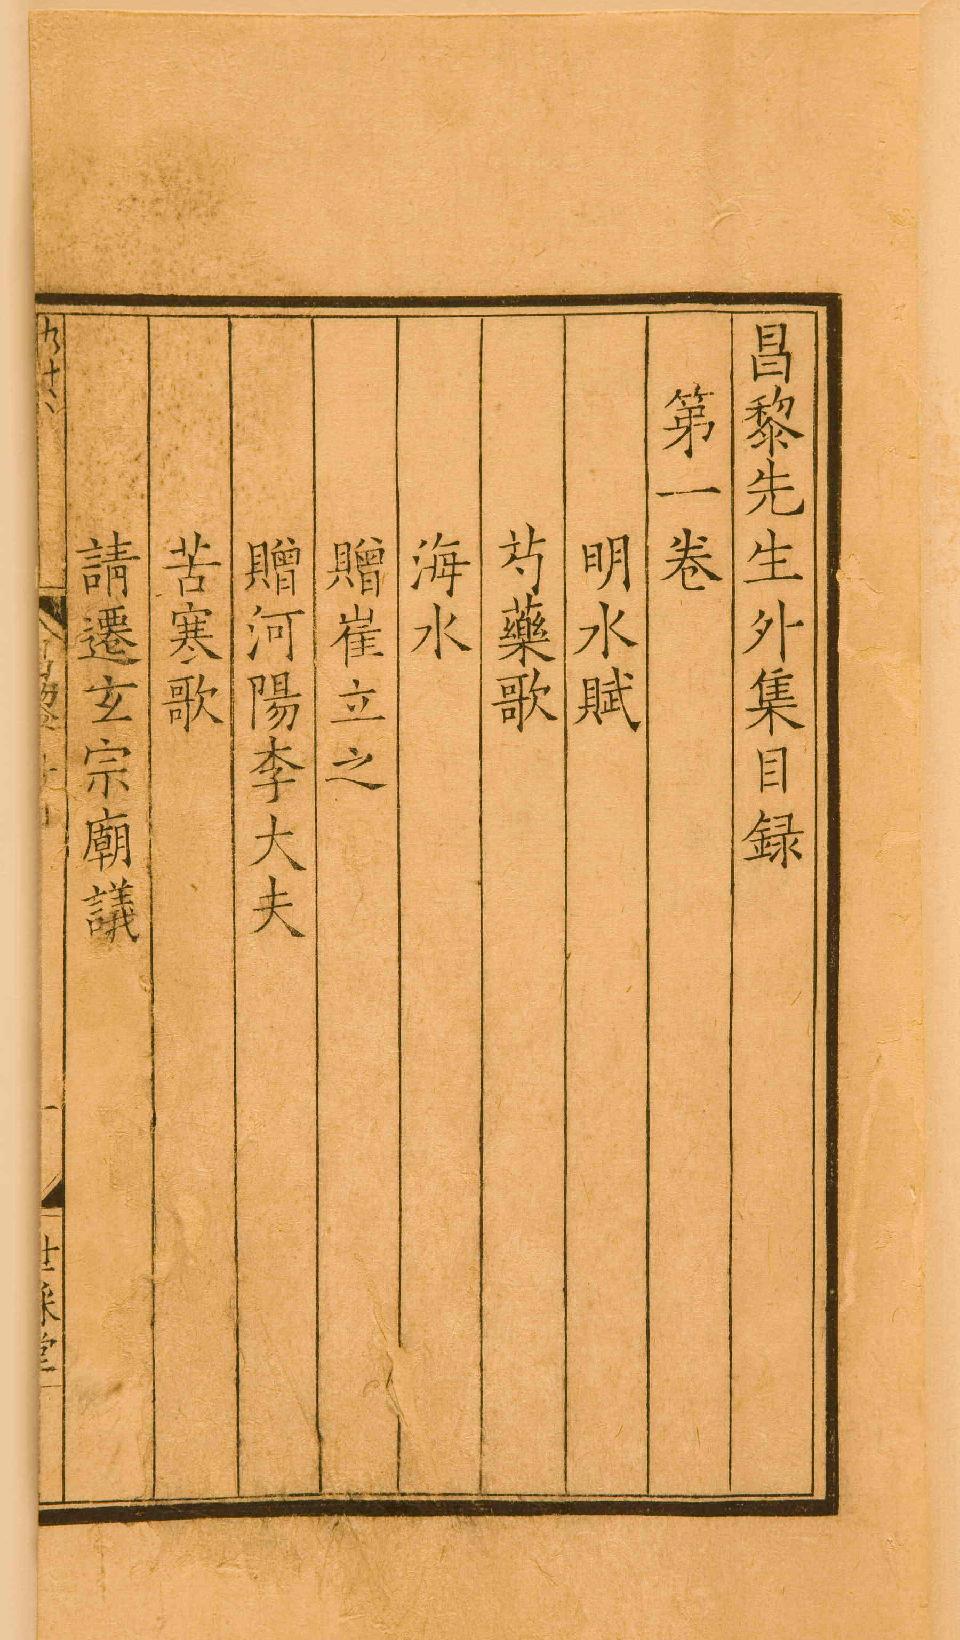 昌黎先生外集目録
第一卷
明水賦
芍藥歌
海水
贈崔立之
贈河陽李大夫
苦寒歌
請遷玄宗廟議
世綵堂